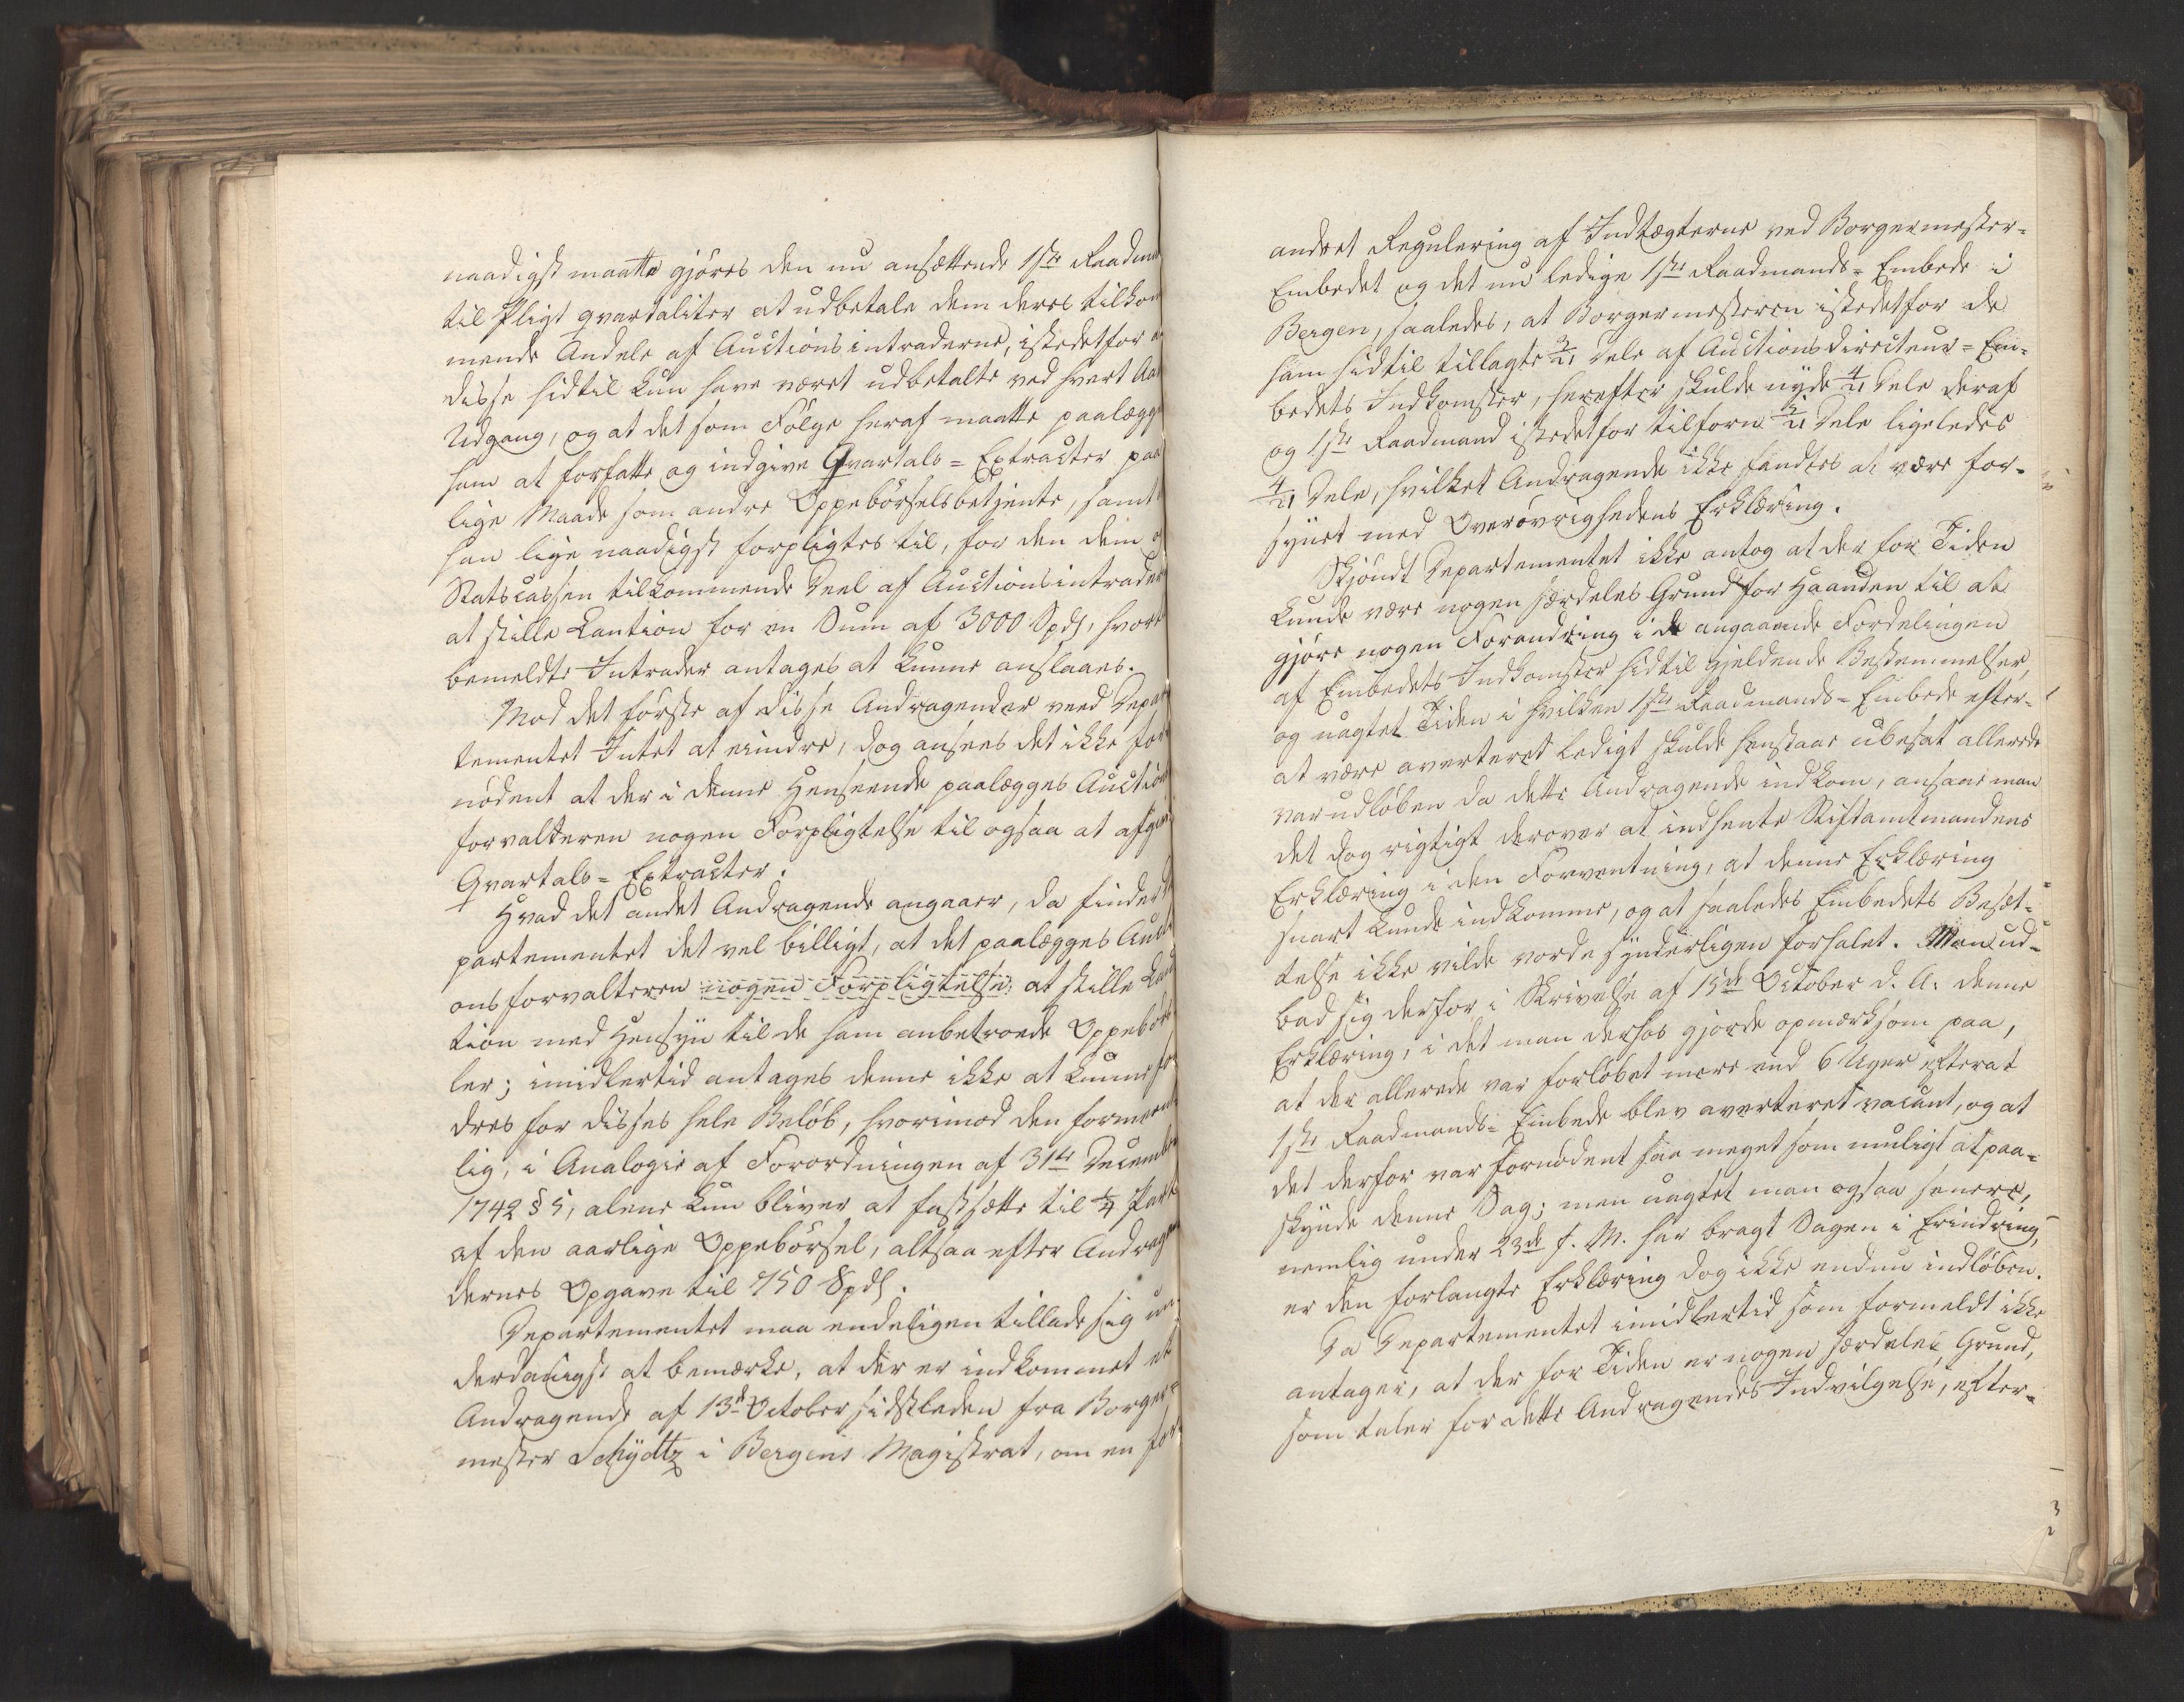 naadigst maatte gjöres den nu ansættende 1ste Raadma
til Pligt qvartaliter at udbetale dem deres tilkom
mende Andele af Auctionsintraderne, istedetfor a
disse hidtil kun have været udbetalte ved hvert Aa
Udgang, og at det som Fölge heraf maatte paalægge
ham at forfatte og indgive Qvartals-Extracter paa
lige Maade som andre Oppebörselsbetjente, samt
han lige naadigst forpligtes til, for den dem o
Statscassen tilkommende Deel af Auctionsintrader
at stille Caution for en Sum af 3000 Spd, hvort
bemeldte Intrader antages at kunne anslaaes.
Mod det förste af disse Andragender veed Depar
tementet Intet at erindre, dog ansees det ikke for
nödent at der i denne Henseende paalægges Auction
forvalteren nogen Forpligtelse til ogsaa at afgive
Qvartals-Extracter.
Hvad det andet Andragende angaaer, da finder D
partementet det vel billigt, at det paalægges Aucti
onsforvalteren nogen Forpligtelse at stille Cau
tion med Hensyn til de ham anbetroede Oppebörs
ler; imidlertid antages denne ikke at kunne for
dres for disses hele Belöb, hvorimod den formeent
lig, i Analogie af Forordningen af 31te December
1742 § 5, alene kun bliver at fastsætte til 1/4 Part
af den aarlige Oppebörsel, altsaa efter Andragen
dernes Opgave til 750 Spd.
Departementet maa endeligen tillade sig un
derdanigst at bemærke, at der er indkommet et
Andragende af 13de October sidstleden fra Borger
mester Schydtz i Bergens Magistrat, om en for
andret Regulering af Indtægterne ved Borgermester-
Embedet og det nu ledige 1ste Raadmands-Embede i
Bergen, saaledes, at Borgermesteren istedetfor de
ham hidtil tillagte 3/21 Dele af Auctionsdirecteur-Em-
bedets Indkomster, herefter skulde nyde 4/21 Dele deraf
og 1ste Raadmand istedetfor tilforn 5/21 Dele ligeledes
4/21 Dele, hvilket Andragende ikke fandtes at være for-
synet med Overövrighedens Erklæring.
Skjöndt Departementet ikke antog at der for Tiden
kunde være nogen særdeles Grund for Haanden til at
gjöre nogen Forandring i de angaaende Fordelingen
af Embedets Indkomster hidtil gjeldende Bestemmelser,
og uagtet Tiden i hvilken 1ste Raadmands-Embede efter
at være averteret ledigt skulde henstaae ubesat allerede
var udlöben da dette Andragende indkom, ansaae man
det dog rigtigt derover at indhente Stiftamtmandens
Erklæring i den Forventning, at denne Erklæring
snart kunde indkomme, og at saaledes Embedets Besæt-
telse ikke vilde vorde synderligen forhalet. Man ud-
bad sig derfor i Skrivelse af 15de October d. A. denne
Erklæring, i det man derhos gjorde opmærksom paa,
at der allerede var forlöbet mere end 6 Uger efterat
1ste Raadmands-Embede blev averteret vacant, og at
det derfor var fornödent saa meget som muligt at paa-
skynde denne Sag; men uagtet man ogsaa senere,
nemlig under 23de f. M. har bragt Sagen i Erindring,
er den forlangte Erklæring dog ikke endnu indlöben.
Da Departementet imidlertid som formeldt ikke
antager, at der for Tiden er nogen særdeles Grund,
som taler for dette Andragendes Indvilgelse, efter-